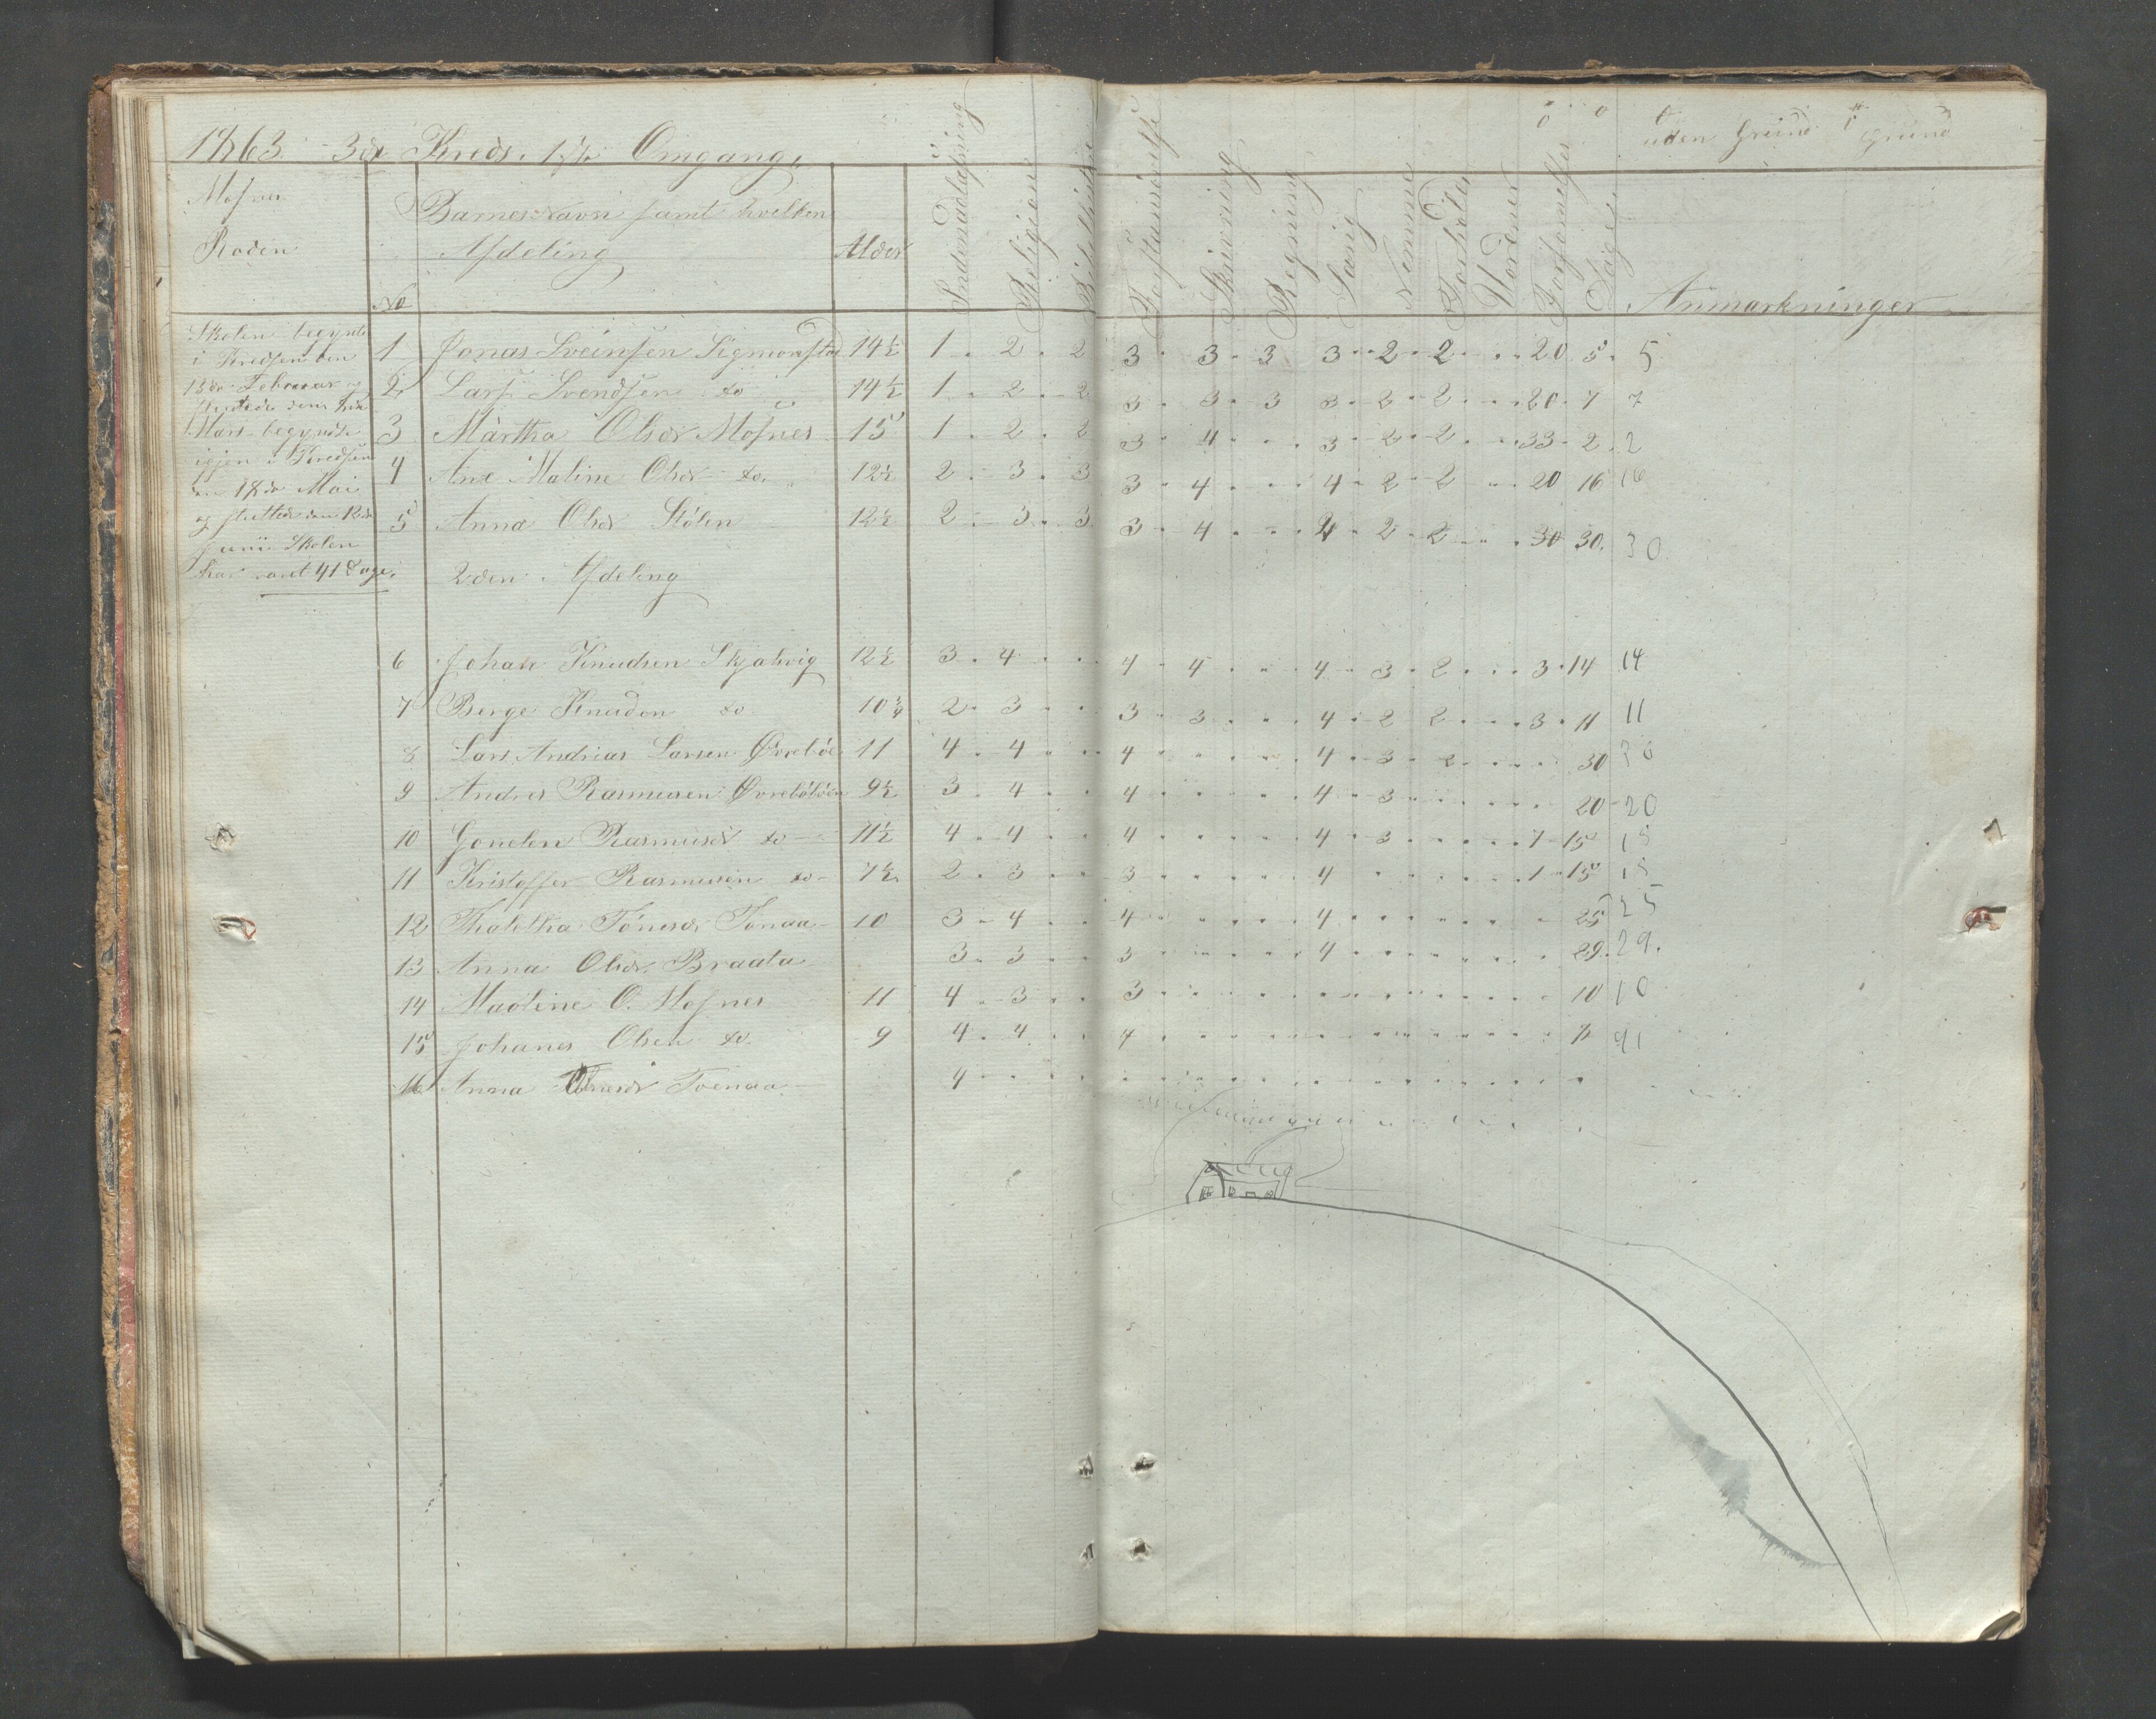 1863 - 3die Kreds. 1ste Omgang.
uden Grund Grund
Mosnes
Roden
No
Barnes Navn samt hvilken
Afdeling
Alder
Indenadlæsning
Religion
Bibelhistorie
Forstandsøvelse
Skrivning
Regning
Sang
Nemme
Forhold
Forsømelser
Dage
Anmærkninger
Skolen begynte
i Kredsen den
13de Februar og
sluttede den
Mars begyndte
igjen i Kredsen
den 18de Mai
og sluttede den 12te
Juni Skolen
har varet 41 Dage.
1 Jonas Sveinsen Sigmonstad 14½ 1 . 2 . 2 3 . 3 . 3 3 . . 2 . 2 . . . 20 5 . 5
2 Lars Svendsen do 14½ 1 . 2 . 2 3 . 3 . 3 3 . 2 . 2 . . . 20 . 7 7
3 Märtha Olsdr Mosnes 15 1 . 2 . 2 3 . 4 . . . 3 . 2 . 2 . . . 33 . 2 . 2
4 Ane Maline Olsdr do. 12½ 2 . 3 . 3 3 . 4 . . . 4 . 2 . 2 . . 20 16 16
5 Anna Olsdr Stölen 12½ 2 . 3 . 3 3 . 4 . . . 4 . 2 . 2 . . . 30 30. 30
2den Afdeling
6 Johan Knudsen Skjalvig 12½ 3 . 4 . . 4 . 4 . . . 4 . 3 . 2 . . . 3 . 14 14
7 Berge Knudsen do 10¾ 2 . 3 . . 3 . 3 . . . 4 . 2 2 . . . 3 . 11 11
8 Lars Andrias Larsen Övrebö 11 4 . 4 . . 4 . . . . . 4 . 3 . 2 . . . . 30 30
9 Andres Rasmusen Övrebö 9½ 3 . 4 . . 4 . . . . . 4 . 3 . . . . . . 20 - 20
10 Gonelen Rasmusdr do 11½ 4 . 4 . . 4 . . . . . 4 . 3 . . . . . 7 - 15 15
11 Kristoffer Rasmusen do 7½ 2 . 3 . . 3 . . . . . 4 . . . . . . 1 - 15 15
12 Thaletha Tönesdr Tonaa 10 3 . 4 . . 4 . . . . . 4 . . . . . . . 25 25
13 Anna Olsdr. Braata 3 . 3 . . 3 . . . . . 4 . . . . . . . 29. 29.
14 Maoline O. Mosnes 11 4 . 3 . . 3 . . . . . . . . . . . . . 10 10
15 Johanes Olsen do. 9 4 . 4 . . 4 . . . . . . . . . . . . .
16 Anna Tönesdr Toenaa 4 . . . . . . . . . . . . . . . .